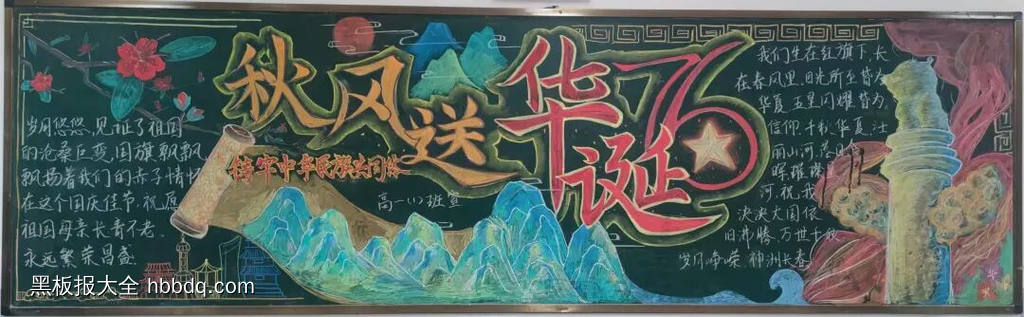 秋风送
华诞76
铸牢中华民族共同体
高一(1)班宣
岁月悠悠,见证了祖国
的沧桑巨变,国旗飘飘
飘扬着我们的赤子情怀
在这个国庆佳节,祝愿
祖国母亲长青不老,
永远繁荣昌盛
我们生在红旗下,长
在春风里,目光所至皆为
华夏,五星闪耀皆为
信仰,千秋华夏,江
丽山河
晖璀璨
河,祝我
泱泱大国依
旧沸腾,万世千秋
岁月峥嵘,神洲长春
黑板报大全 hbbdq.com